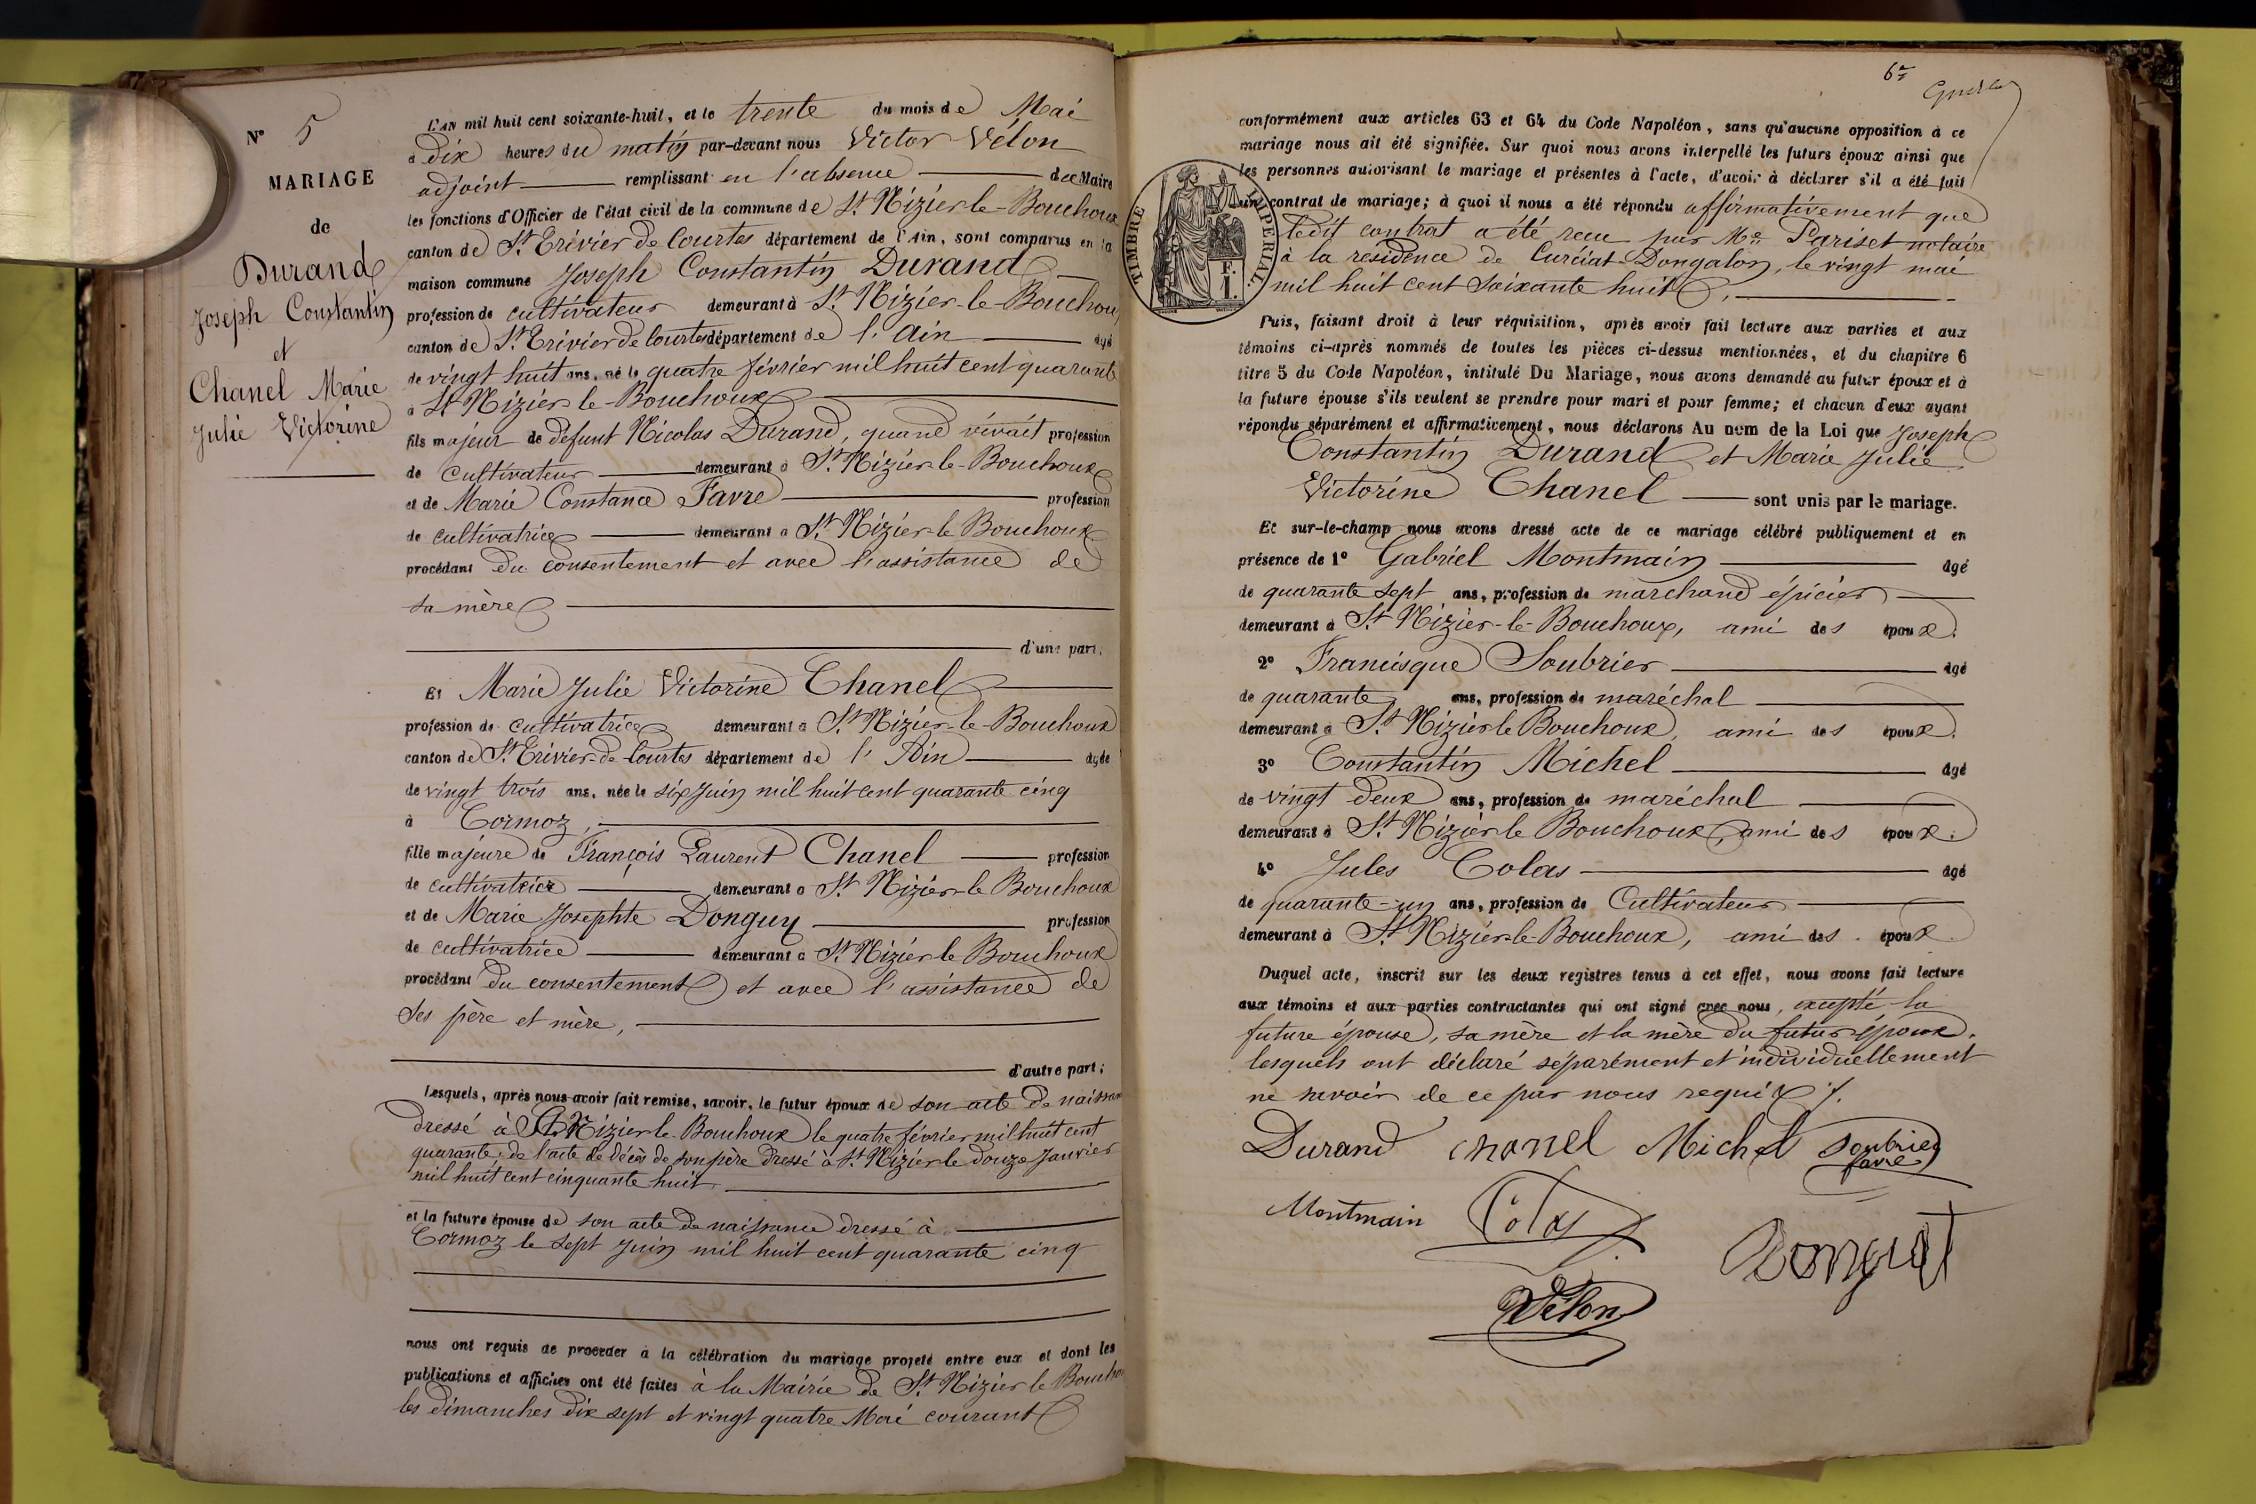 N° 5
MARIAGE
de
Durand
Joseph Constantin
et
Chanel Marie
Julie Victorine
L'AN mil huit cent soixante-huit, et le trente du mois de Mai
à Dix heures du matin par-devant nous Victor Vélon
adjoint remplissant en l'absence du Maire
les fonctions d'Officier de l'état civil de la commune de St Nizier-le-Bouchoux
canton de St Trivier de Courtes département de l'Ain, sont comparus en la
maison commune Joseph Constantin Durand
profession de cultivateur demeurant à St Nizier-le-Bouchoux
canton de St Trivier de Courtes département de l'Ain âgé
de vingt huit ans, né le quatre février mil huit cent quarante
à St Nizier-le-Bouchoux
fils majeur de défunt Nicolas Durand, quand vivait profession
de cultivateur demeurant à St Nizier-le-Bouchoux
et de Marie Constance Favre profession
de cultivatrice demeurant à St Nizier-le Bouchoux
procédant du consentement et avec l'assistance de
sa mère
d'une part.
Et Marie Julie Victorine Chanel
profession de cultivatrice demeurant à St Nizier-le-Bouchoux
canton de St Trivier-de-Courtes département de l'Ain âgée
de vingt trois ans, née le six Juin mil huit cent quarante cinq
à Cormoz,
fille majeure de François Laurent Chanel profession
de cultivatrice demeurant à St Nizier-le Bouchoux
et de Marie Josephte Donguy profession
de cultivatrice demeurant à St Nizier-le Bouchoux
procédant du consentement et avec l'assistance de
Ses père et mère,
d'autre part;
Lesquels, après nous avoir fait remise, savoir, le futur époux de son acte de naissance
dressé à St Nizier-le-Bouchoux le quatre février mil huit cent
quarante, de l'acte de décès de son père dressé à St Nizier le douze Janvier
mil huit cent cinquante huit.
et la future épouse de son acte de naissance dressé à
Cormoz le sept Juin mil huit cent quarante cinq
nous ont requis de procéder à la célébration du mariage projeté entre eux et dont les
publications et affiches ont été faites à la Mairie de St Nizier le Bouchoux
les dimanches dix sept et vingt quatre Mai courant
conformément aux articles 63 et 64 du Code Napoléon, sans qu'aucune opposition à ce
mariage nous ait été signifiée. Sur quoi nous avons interpellé les futurs époux ainsi que
les personnes autorisant le mariage et présentes à l'acte, d'avoir à déclarer s'il a été fait
un contrat de mariage; à quoi il nous a été répondu affirmativement que
ledit contrat a été reçu par Me Pariset notaire
à la résidence de Curciat-Dongalon, le vingt mai
mil huit cent soixante huit.
TIMBRE IMPERIAL.
F.
I.
Puis, faisant droit à leur réquisition, après avoir fait lecture aux parties et aux
témoins ci-après nommés de toutes les pièces ci-dessus mentionnées, et du chapitre 6
titre 5 du Code Napoléon, intitulé Du Mariage, nous avons demandé au futur époux et à
la future épouse s'ils veulent se prendre pour mari et pour femme; et chacun d'eux ayant
répondu séparément et affirmativement, nous déclarons Au nom de la Loi que Joseph
Constantin Durand et Marie Julie
Victorine Chanel sont unis par le mariage.
Et sur-le-champ nous avons dressé acte de ce mariage célébré publiquement et en
présence de 1° Gabriel Montmain âgé
de quarante sept ans, profession de marchand épicier
demeurant à St Nizier-le-Bouchoux, ami des époux.
2° Francisque Soubrier âgé
de quarante ans, profession de maréchal
demeurant à St Nizier le Bouchoux, ami des époux.
3° Constantin Michel âgé
de vingt deux ans, profession de maréchal
demeurant à St Nizier le Bouchoux, ami des époux.
4° Jules Colas âgé
de quarante-un ans, profession de Cultivateur
demeurant à St Nizier-le-Bouchoux, ami des époux
Duquel acte, inscrit sur les deux registres tenus à cet effet, nous avons fait lecture
aux témoins et aux parties contractantes qui ont signé avec nous, excepté la
future épouse, sa mère et la mère du futur époux.
lesquels ont déclaré séparément et individuellement
ne savoir de ce par nous requis ./.
Durand chanel Michel Soubrier
Montmain Colas
Vélon